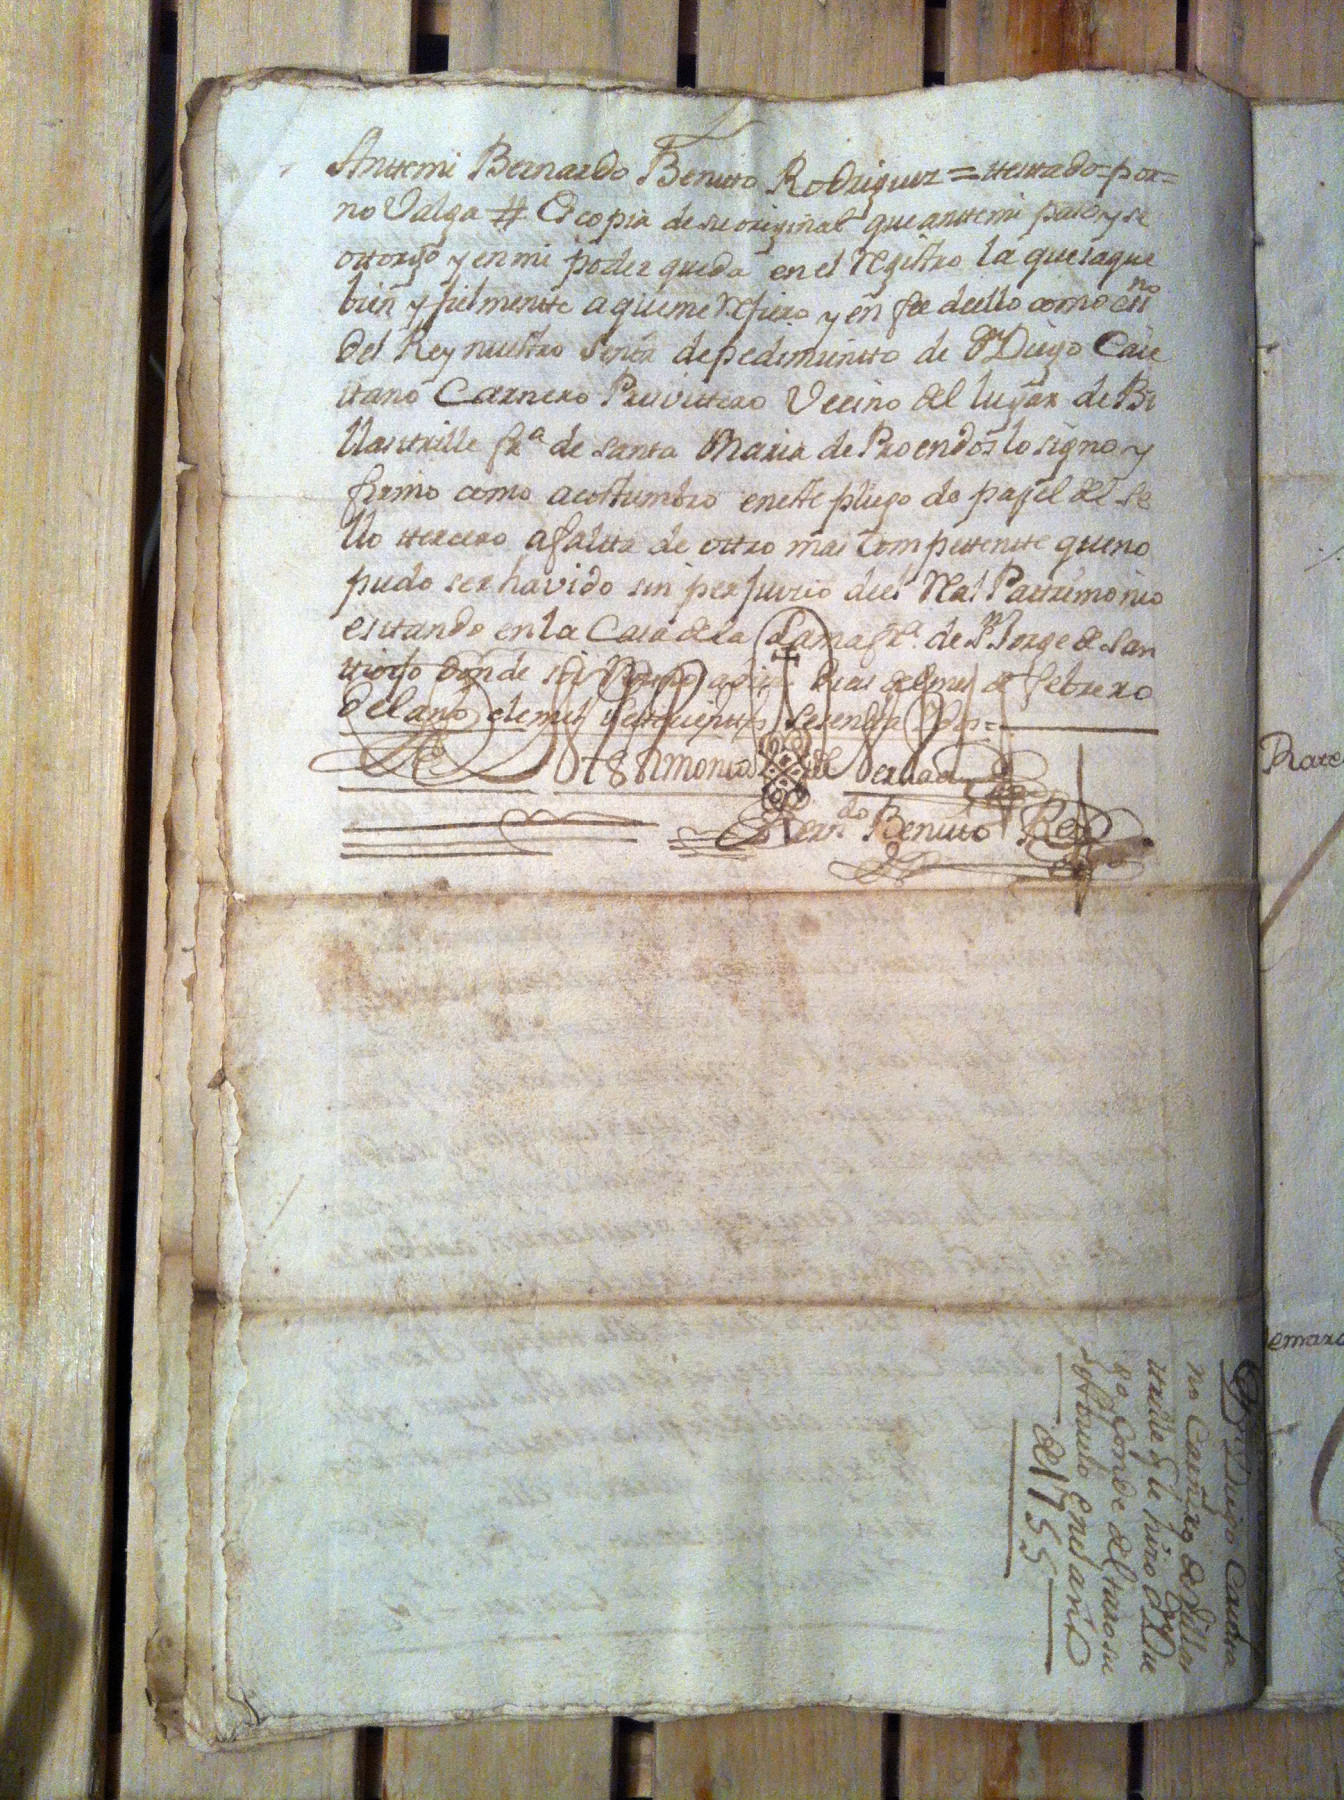 Anttemi Bernardo Benitto Rodriguez =ttesttado = por =
no Valga # Es copia de su original que anttemi paso y se
ottorgo y en mi poder queda en el registro la que saque
bien y fielmentte a que me refiero y en fee de ello como essno
del Rey nuestro Señor de pedimientto de Dn Diego Caie
ttano Carnero Presvittero Vecino del lugar de Bi
llasttrille fra de Santa Maria de Proendos lo signo y
firmo como acostumbro en este pliego de papel del se
llo ttercero a faltta de ottro mas Competentte que no
pudo ser havido sin perjuicio del Real Pattrimonio
esttando en la Casa de la Lama fra. de Sn Jorge de San
ttiorjo donde soi Vecino a dias del mes de febrero
del año de mil settecienttos sesentta y dos =
Bernдо Benitto Rez
Dn Diego Caietta
no Carnero de Villas
ttrille q le hizo Dn Die
so Conde del
en el año
de 1755